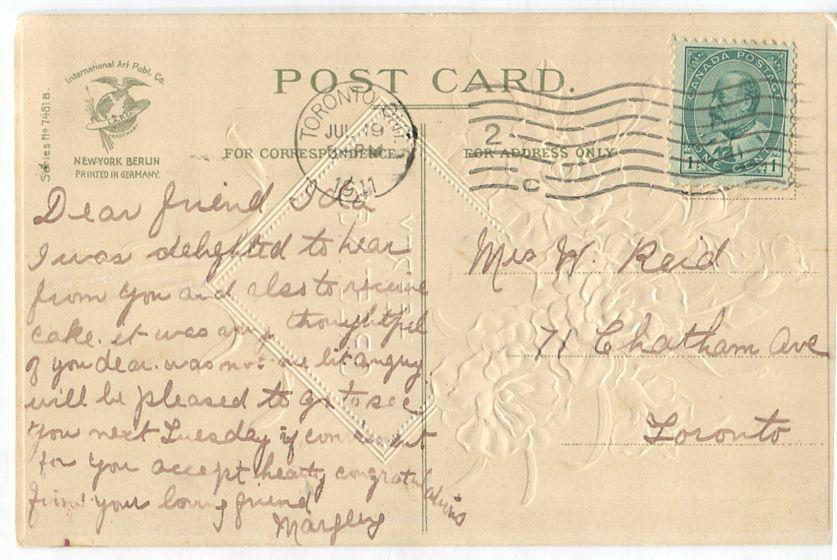 International Art Publ. Co.
Series No 7481 B.
NEW-YORK BERLIN
PRINTED IN GERMANY.
POST CARD.
FOR CORRESPONDENCE.
FOR ADDRESS ONLY
TORONTO
JUL 19
1911
2
C
CANADA POSTAGE
1 ONE CENT 1
Dear friend Ida
I was delighted to hear
from you and also to receive
cake. it was thoughtful
of you dear. was not one bit angry
will be pleased to go to see
you next Tuesday if convenient
for you accept hearty congratulations
from your loving friend
Mrs W. Reid
71 Chatham Ave
Toronto